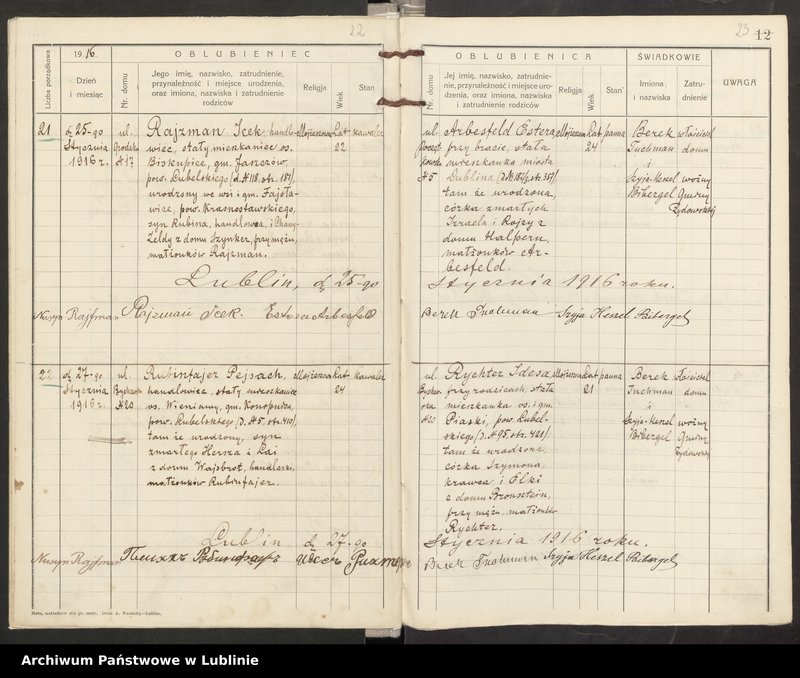 22
Liczba porządkowa
1916.
Dzień
i miesiąc
Nr. domu
OBLUBIENIEC
Jego imię, nazwisko, zatrudnienie,
przynależność i miejsce urodzenia,
oraz imiona, nazwiska i zatrudnienie
rodziców
Religja
Wiek
Stan
21
d. 25-go
Stycznia
1916 r.
ul.
№ 17
Rajzman Icek, handlo-
wiec, stały mieszkaniec os.
Biskupice, gm. Jaszczów,
pow. Lubelskiego (d. № 118, str. 181),
urodzony we wsi i gm. Fajsła-
wice, pow. Krasnostawskiego,
syn Rubina, handlowca, i Chany-
Zeldy z domu Szynker, przy mężu,
małżonków Rajzman.
Mojżeszowa
Lat
22
kawaler
Lublin, d. 25-go
Rajzman Icek. Estera Arbesfeld
22
d. 27-go
Stycznia
1916 r.
ul.
№ 20
Rubinfajer Pejsach,
handlowiec, stały mieszkaniec
os. Wieniawy, gm. Konopnica,
pow. Lubelskiego (d. № 5. str. 410),
tam że urodzony, syn
zmarłego Hersza i Łai
z domu Wajsbrot, handlarki,
małżonków Rubinfajer.
Mojżeszowa
Lat
24
kawaler
Lublin d. 27-go
Matr. zaślubów dla gm. mojż. Druk A. Rozdoby—Lublin.
23 12
Nr. domu
OBLUBIENICA
Jej imię, nazwisko, zatrudnie-
nie, przynależność i miejsce uro-
dzenia, oraz imiona, nazwiska
i zatrudnienie rodziców
Religja
Wiek
Stan
ŚWIADKOWIE
Imiona
i nazwiska
Zatru-
dnienie
UWAGA
ul.
№ 5
Arbesfeld Estera,
przy bracie, stała
mieszkanka miasta
Lublina
tam że urodzona,
córka zmarłych
Izraela i Rojzy z
domu Halpern,
małżonków Ar-
besfeld.
Mojżeszowa
Lat
24
panna
Berek
Tuchman
i
Szyja-Heszel
Bibergel
właściciel
domu
woźny
Gminy
Żydowskiej
Stycznia 1916 roku.
Berek Tuchman Szyja Heszel Bibergel
ul.
№ 20
Rychter Idesa,
przy rodzicach, stała
mieszkanka os. i gm.
Piaski, pow. Lubel-
skiego (d. № 95, str. 421)
tam że urodzona,
córka Szymona,
krawca, i Elki
z domu Bronsztein,
przy mężu, małżonków
Rychter.
Mojżeszowa
Lat
21
panna
Berek
Tuchman
i
Szyja-Heszel
Bibergel
właściciel
domu
woźny
Gminy
Żydowskiej
Stycznia 1916 roku.
Berek Tuchman Szyja Heszel Bibergel
Archiwum Państwowe w Lublinie